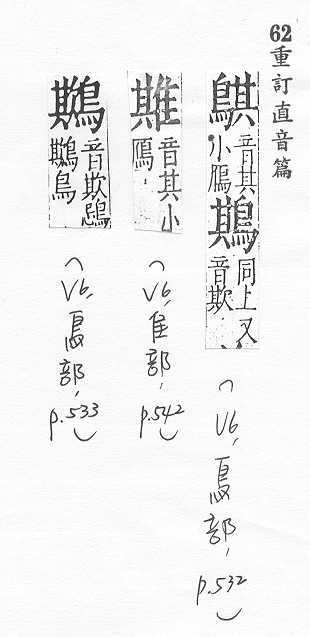 62重訂直音篇
音其
小鴈
鶀
同上又
音欺
(V6,鳥部,p.532)
音其小
鴈
(V6,隹部,p.542)
鶀
音欺
鶀鳥
(V6,鳥部,p.533)